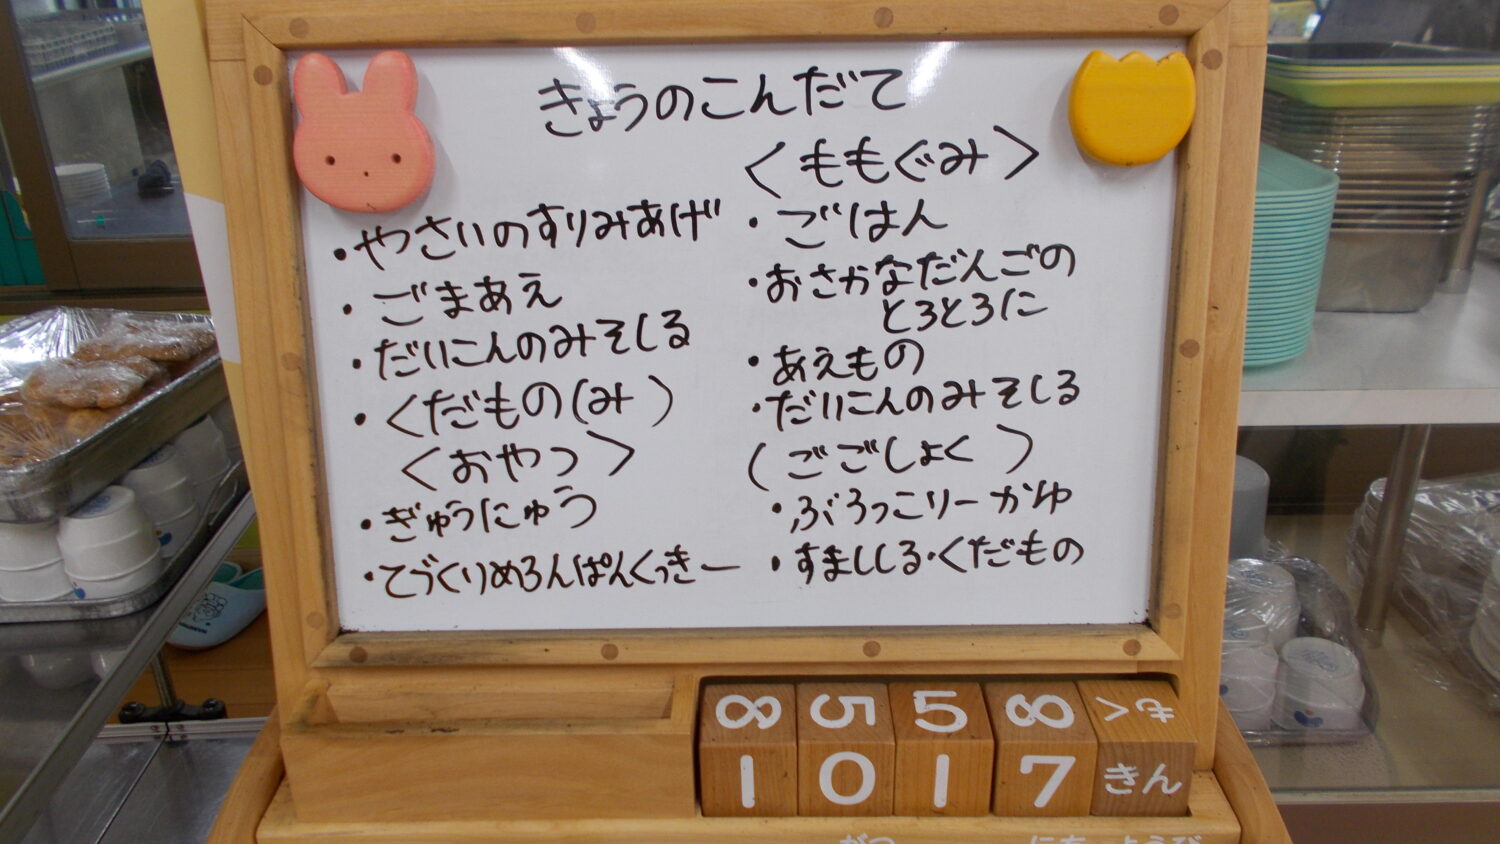 きょうのこんだて
・やさいのすりみあげ
・ごまあえ
・だいこんのみそしる
・くだもの(み)
<おやつ>
・ぎゅうにゅう
・てづくりめろんぱんくっきー
<ももぐみ>
・ごはん
・おさかなだんごの
とろとろに
・あえもの
・だいこんのみそしる
(ごごしょく)
・ぶろっこりーかゆ
・すましじる・くだもの
8 5 5 8 もく
1 0 1 7 きん
がつ にち ようび